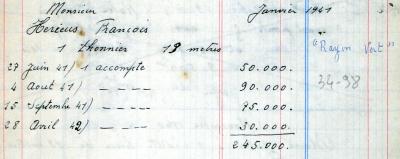 Monsieur Janvier 1941
Hereeus Francois
1 thonnier 19 metres
"Rayon Vert"
27 Juin 41) 1 accompte 50.000.
34-98
4 Aout 41) — — — — 90.000.
15 Septembre 41) — — — — 75.000.
28 Avril 42) — — — — 30.000.
245.000.